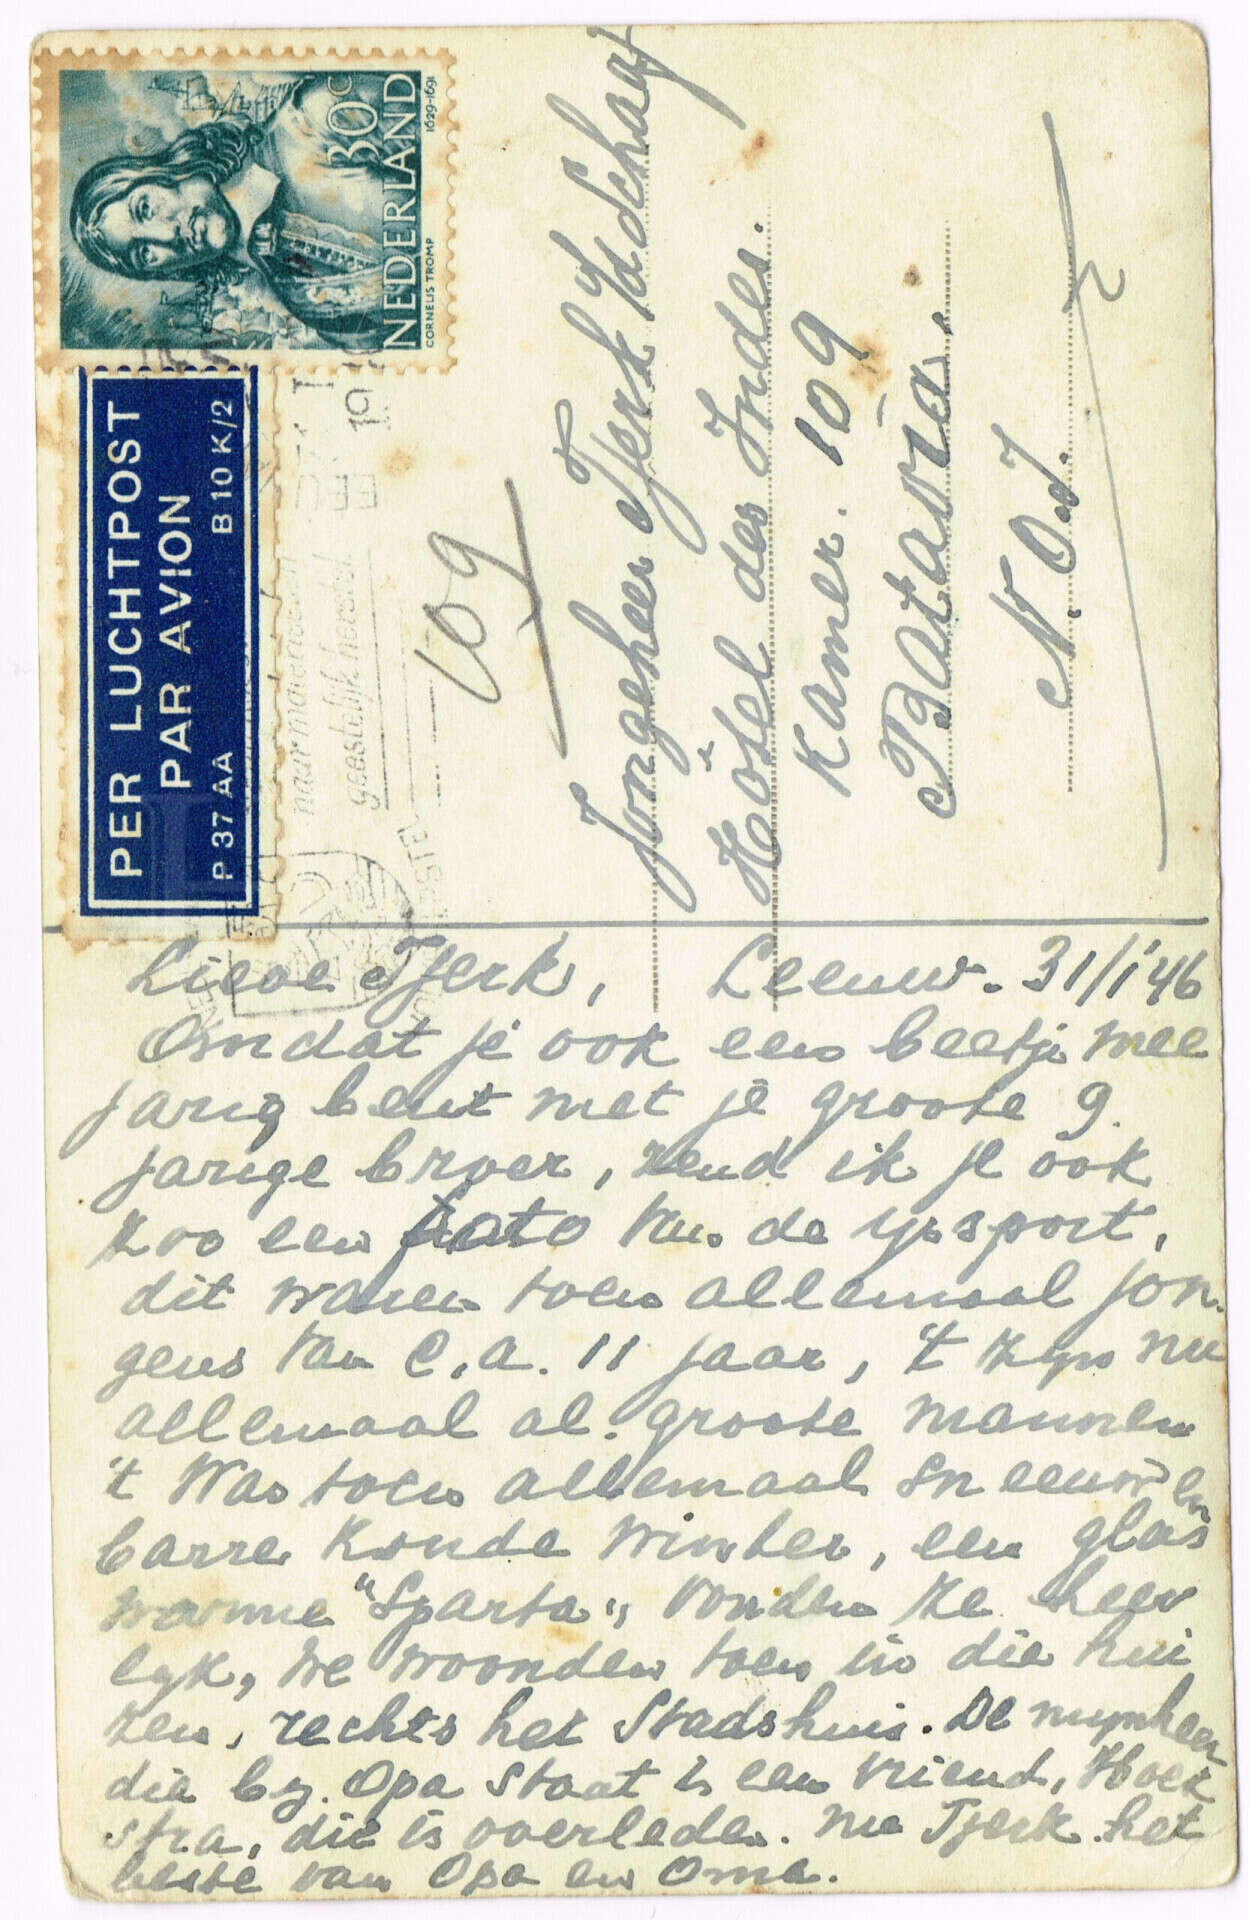 30 C
NEDERLAND
CORNELIS TROMP
1629-1691
PER LUCHTPOST
PAR AVION
P 37 AA B 10 K/2
geestelijk herstel
109
Jongeheer Tjerk Idschaaf
Hôtel des Indes.
Kamer. 109
Batavia.
N.O.I.
Lieve Tjerk, Leeuw. 31/1 '46
Omdat je ook een beetje mee
jarig bent met je groote 9.
jarige broer, zend ik je ook
zoo een foto van de ijssport,
dit waren toen allemaal jon-
gens van c.a. 11 jaar, 't zijn nu
allemaal al. groote mannen
't Was toen allemaal sneeuw en
barre koude winter, een glas
warme "Sparta" vonden ze heer
lijk, we woonden toen in die hui
zen, rechts het Stadshuis. De mijnheer
die bij Opa staat is een vriend, Hoek
stra, die is overleden. nu Tjerk het
beste van Opa en Oma.